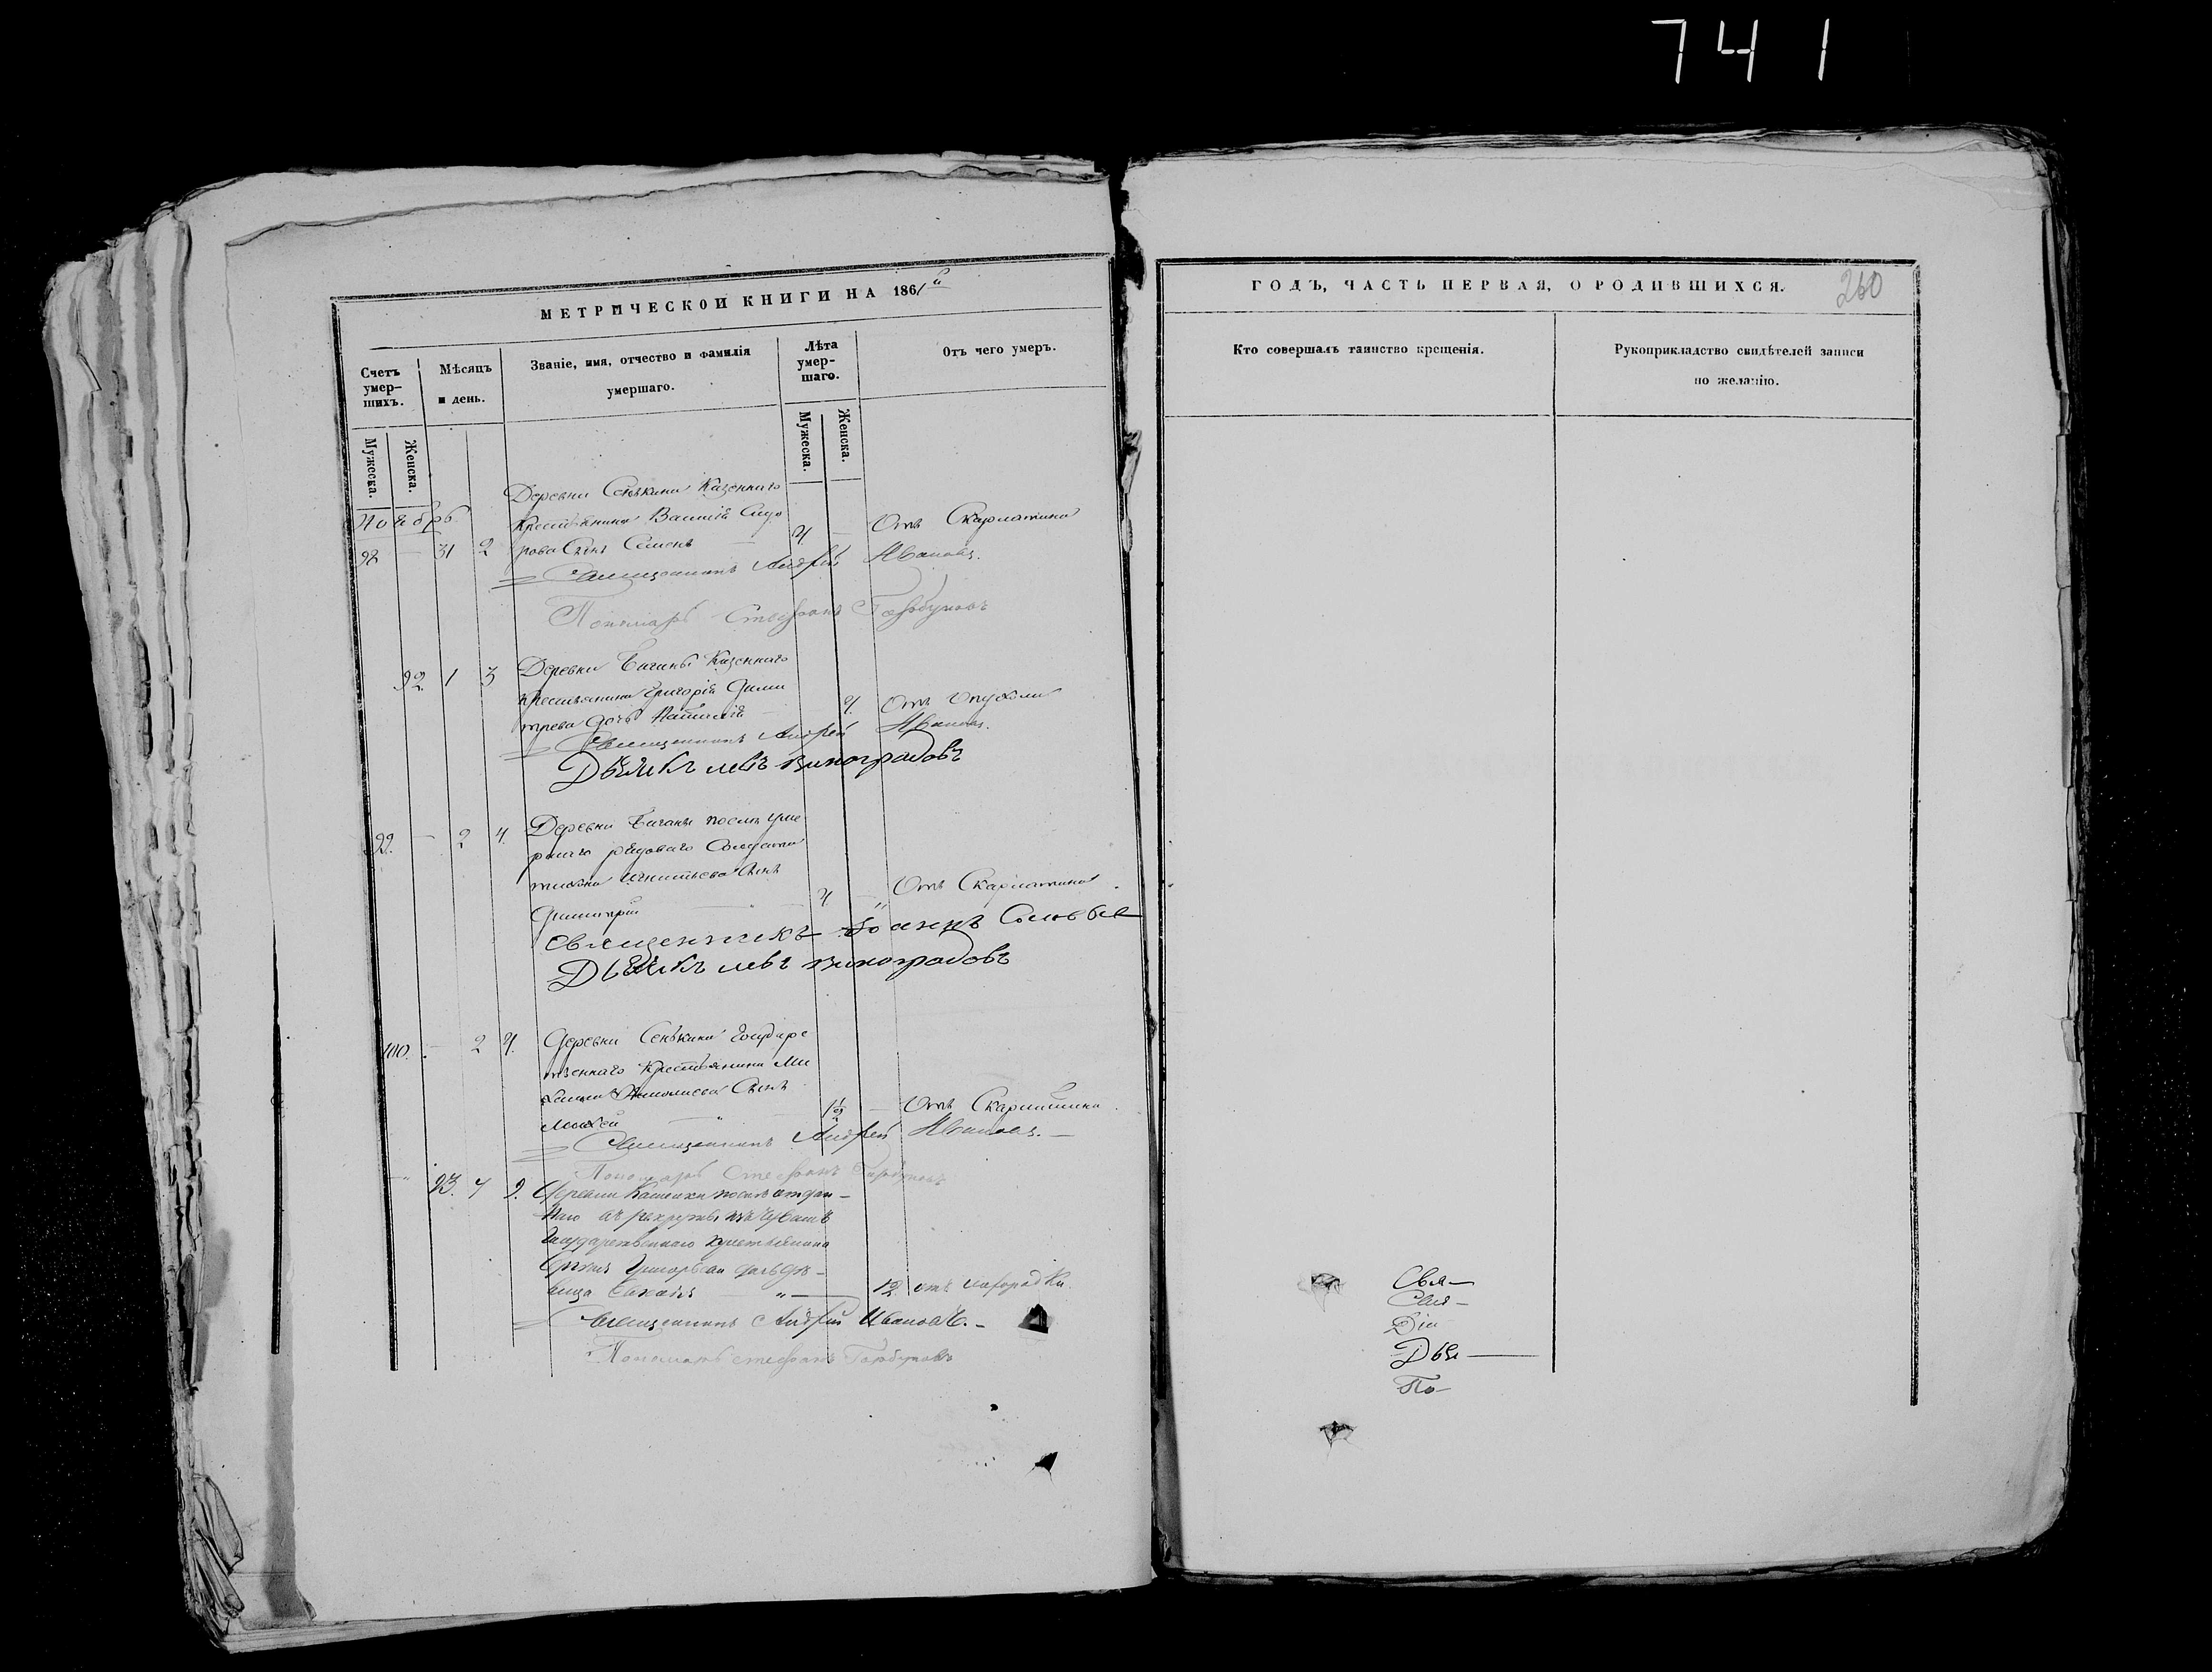 741
МЕТРИЧЕСКОЙ КНИГИ НА 1861й
Счетъ умер-шихъ.
Мѣсяцъ и день.
Званіе, имя, отчество и фамилія умершаго.
Лѣта умер-шаго.
Отъ чего умеръ.
Мужеска.
Женска.
Мужеска.
Женска.
Деревни Сенькина Казеннаго
Ноябрь
Крестьянина Василія Сидо
98 — 31 2 рова Сынъ Семенъ — 4 — Отъ Скарлатина
Священникъ Андрей Ивановъ.
Пономарь Стефанъ Горбуновъ
92 1 3 Деревни Казеннаго
Крестьянина Григорія Дими
трева дочь 4 Отъ Опухоли
Священникъ Андрей Ивановъ.
Дьячикъ левъ виноградовъ
99. — 2 4. Деревни послѣ уме
ршаго рядоваго Солдата
Игнатьева Сынъ
Димитрій 4 — Отъ Скарлатина
Священникъ Іоаннъ Соловье
Дьячикъ левъ виноградовъ
100. — 2 4. Деревни Сенькина Государс
твеннаго Крестьянина Ми
Сынъ
1½ — Отъ Скарлатина.
Священникъ Андрей Ивановъ. —
Пономарь Стефанъ Горбуновъ
— 93. 7 9. Деревни послѣ отдан—
наго въ рекруты
Государственнаго крестьянина
Григорьева дочь дѣ—
вица — 12 отъ лихорадки.
Священникъ Андрей Ивановъ. —
Пономарь стефанъ Горбуновъ
ГОДЪ, ЧАСТЬ ПЕРВАЯ, О РОДИВШИХСЯ.
260
Кто совершалъ таинство крещенія.
Рукоприкладство свидѣтелей записи
по желанію.
Свя—
Свя—
Діа
Дья—
По—